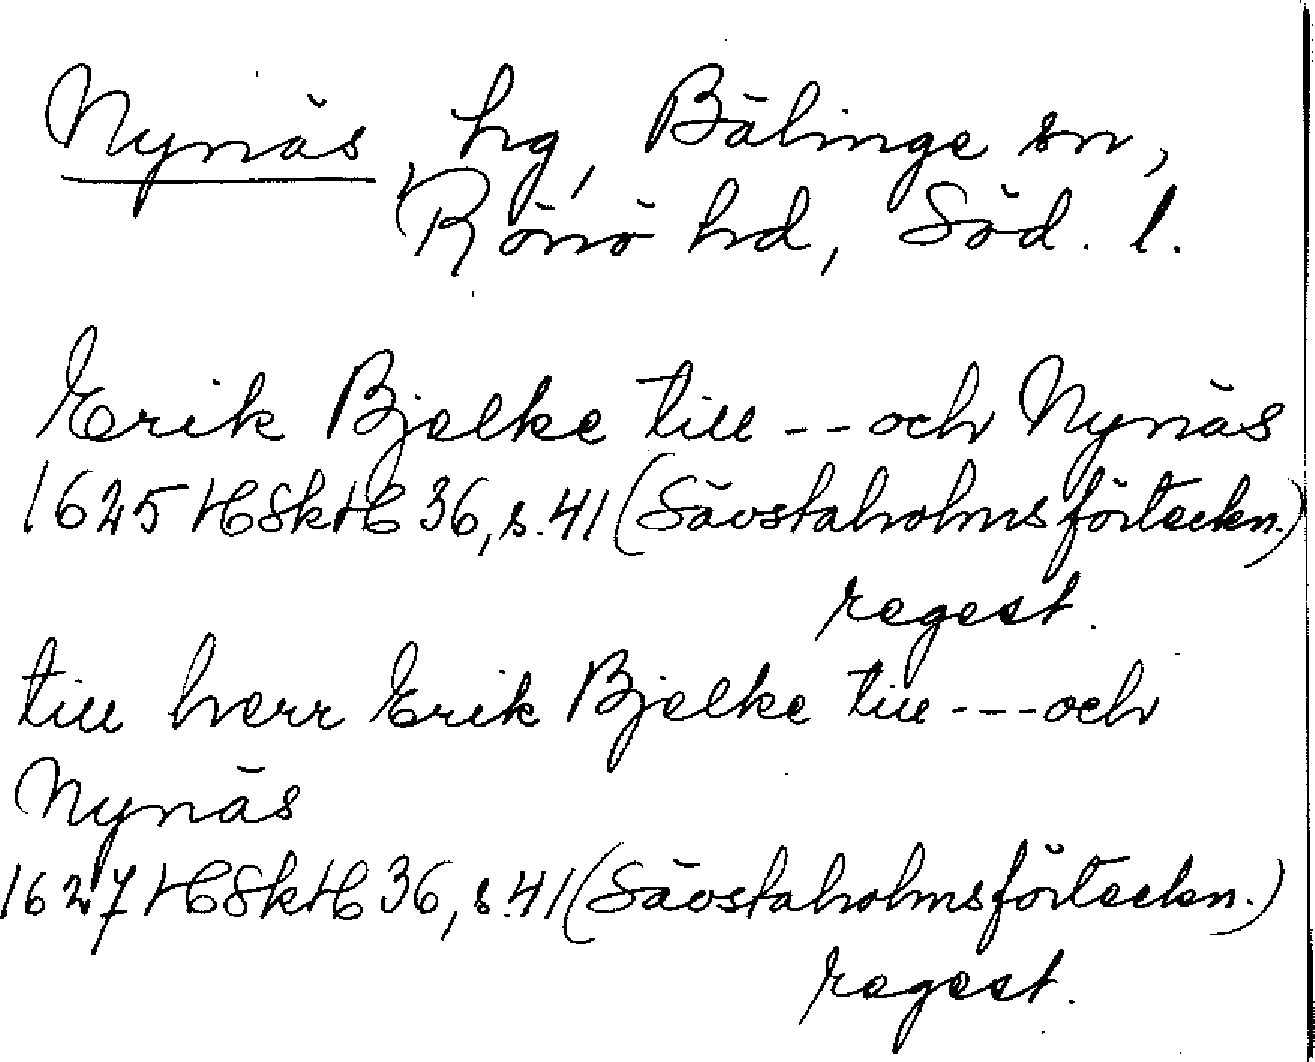 Nynäs, hg, Bälinge sn,
Rönö hd, Söd. l.
Erik Bjelke till -- och Nynäs
1625 HSkH 36, s. 41 (Sävstaholmsförteckn.)
regest.
till herr Erik Bjelke till --- och
Nynäs
1627 HSkH 36, s. 41 (Sävstaholmsförteckn.)
regest.